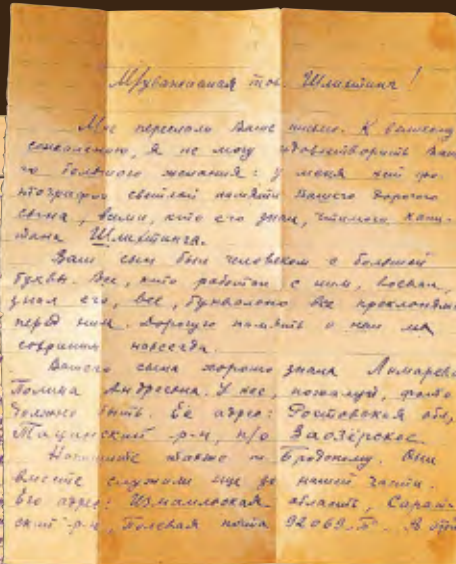 Многоуважаемая тов. Шлихтинг!
Мне переслали Ваше письмо. К великому
сожалению, я не могу удовлетворить Ваше-
го большого желания: у меня нет фо-
тографии светлой памяти Вашего дорогого
сына, всеми, кто его знал, чтимого капи-
тана Шлихтинга.
Ваш сын был человеком с большой
буквы. Все, кто работал с ним, воевал,
знал его, все, буквально все преклонялись
перед ним. Дорогую память о нем мы
сохраним навсегда.
Вашего сына хорошо знала
Полина Андреевна. У нее, пожалуй, фото
должно быть. Её адрес: Ростовская обл.,
Тацинский р-н, п/о Заозёрское.
Напишите также т. Бродскому. Они
вместе служили еще до нашей части.
Его адрес: Измаильская область, Сарат-
ский р-н, Полевая почта 92069-Б. В